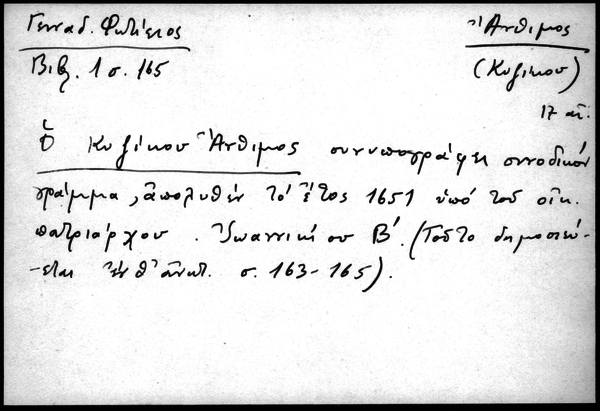 Γενναδ. Φωτίειος
Ἄνθιμος
Βιβλ. 1 σ. 165
(Κυζίκου)
17 αἰ.
Ὁ Κυζίκου Ἄνθιμος συνυπογράφει συνοδικὸν
γράμμα, ἀπολυθὲν τὸ ἔτος 1651 ὑπὸ τοῦ οἰκ.
πατριάρχου Ἰωαννικίου Β΄. (Τοῦτο δημοσιεύ-
-εται ἐνθ' ἀνωτ. σ. 163-165).